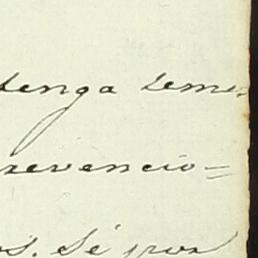 tenga teme
revencio=
os. Sé por